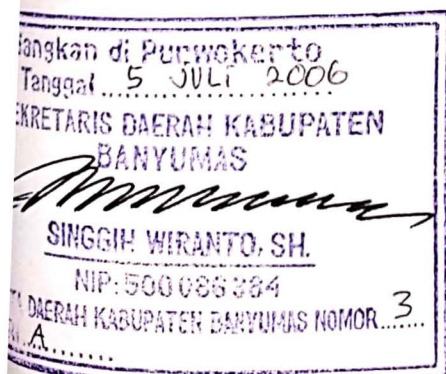 angkan di Purwokerto
Tanggal ... 5 JULI 2006
EKRETARIS DAERAH KABUPATEN
BANYUMAS
SINGGIH WIRANTO, SH.
NIP: 500 086 384
TA DAERAH KABUPATEN BANYUMAS NOMOR...3...
A........